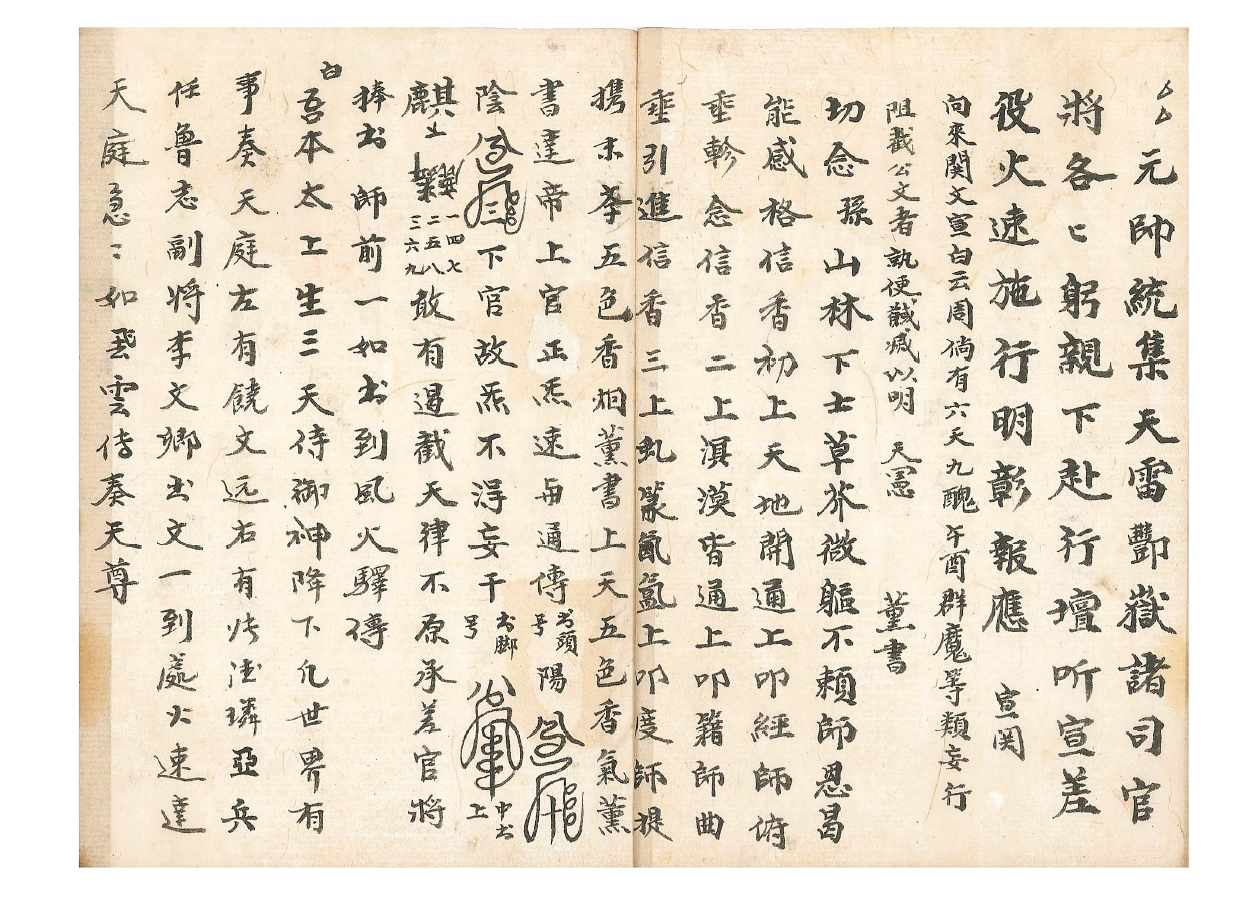 元帥統集天雷酆嶽諸司官
將各〻躬親下赴行壇听宣差
役火速施行明彰報應　宣関
向來関文宣白云周倘有六天九醜午酉群魔等類妄行
阻截公文者執使馘滅以明　天憲　薰書
切念　山林下士草芥微軀不賴師恩曷
能感格信香初上天地開通上叩經師俯
垂軫念信香二上溟漠皆通上叩籍師曲
垂引進信香三上虬篆氤氳上叩度師提
携末季五色香烟薰書上天五色香氣薰
書達帝上官正炁速與通傳　书頭号　陽
陰　下官故炁不淂妄干　书脚号　中书上
麒　一四七二五八三六九　敢有遏截天律不原承差官將
捧书師前一如书到風火驛傳
白　吾本太上生三天侍御神降下凡世界有
事奏天庭左有饒文远右有　璘亞兵
任魯志副將李文卿书文一到處火速達
天庭急〻如雲傳奏天尊